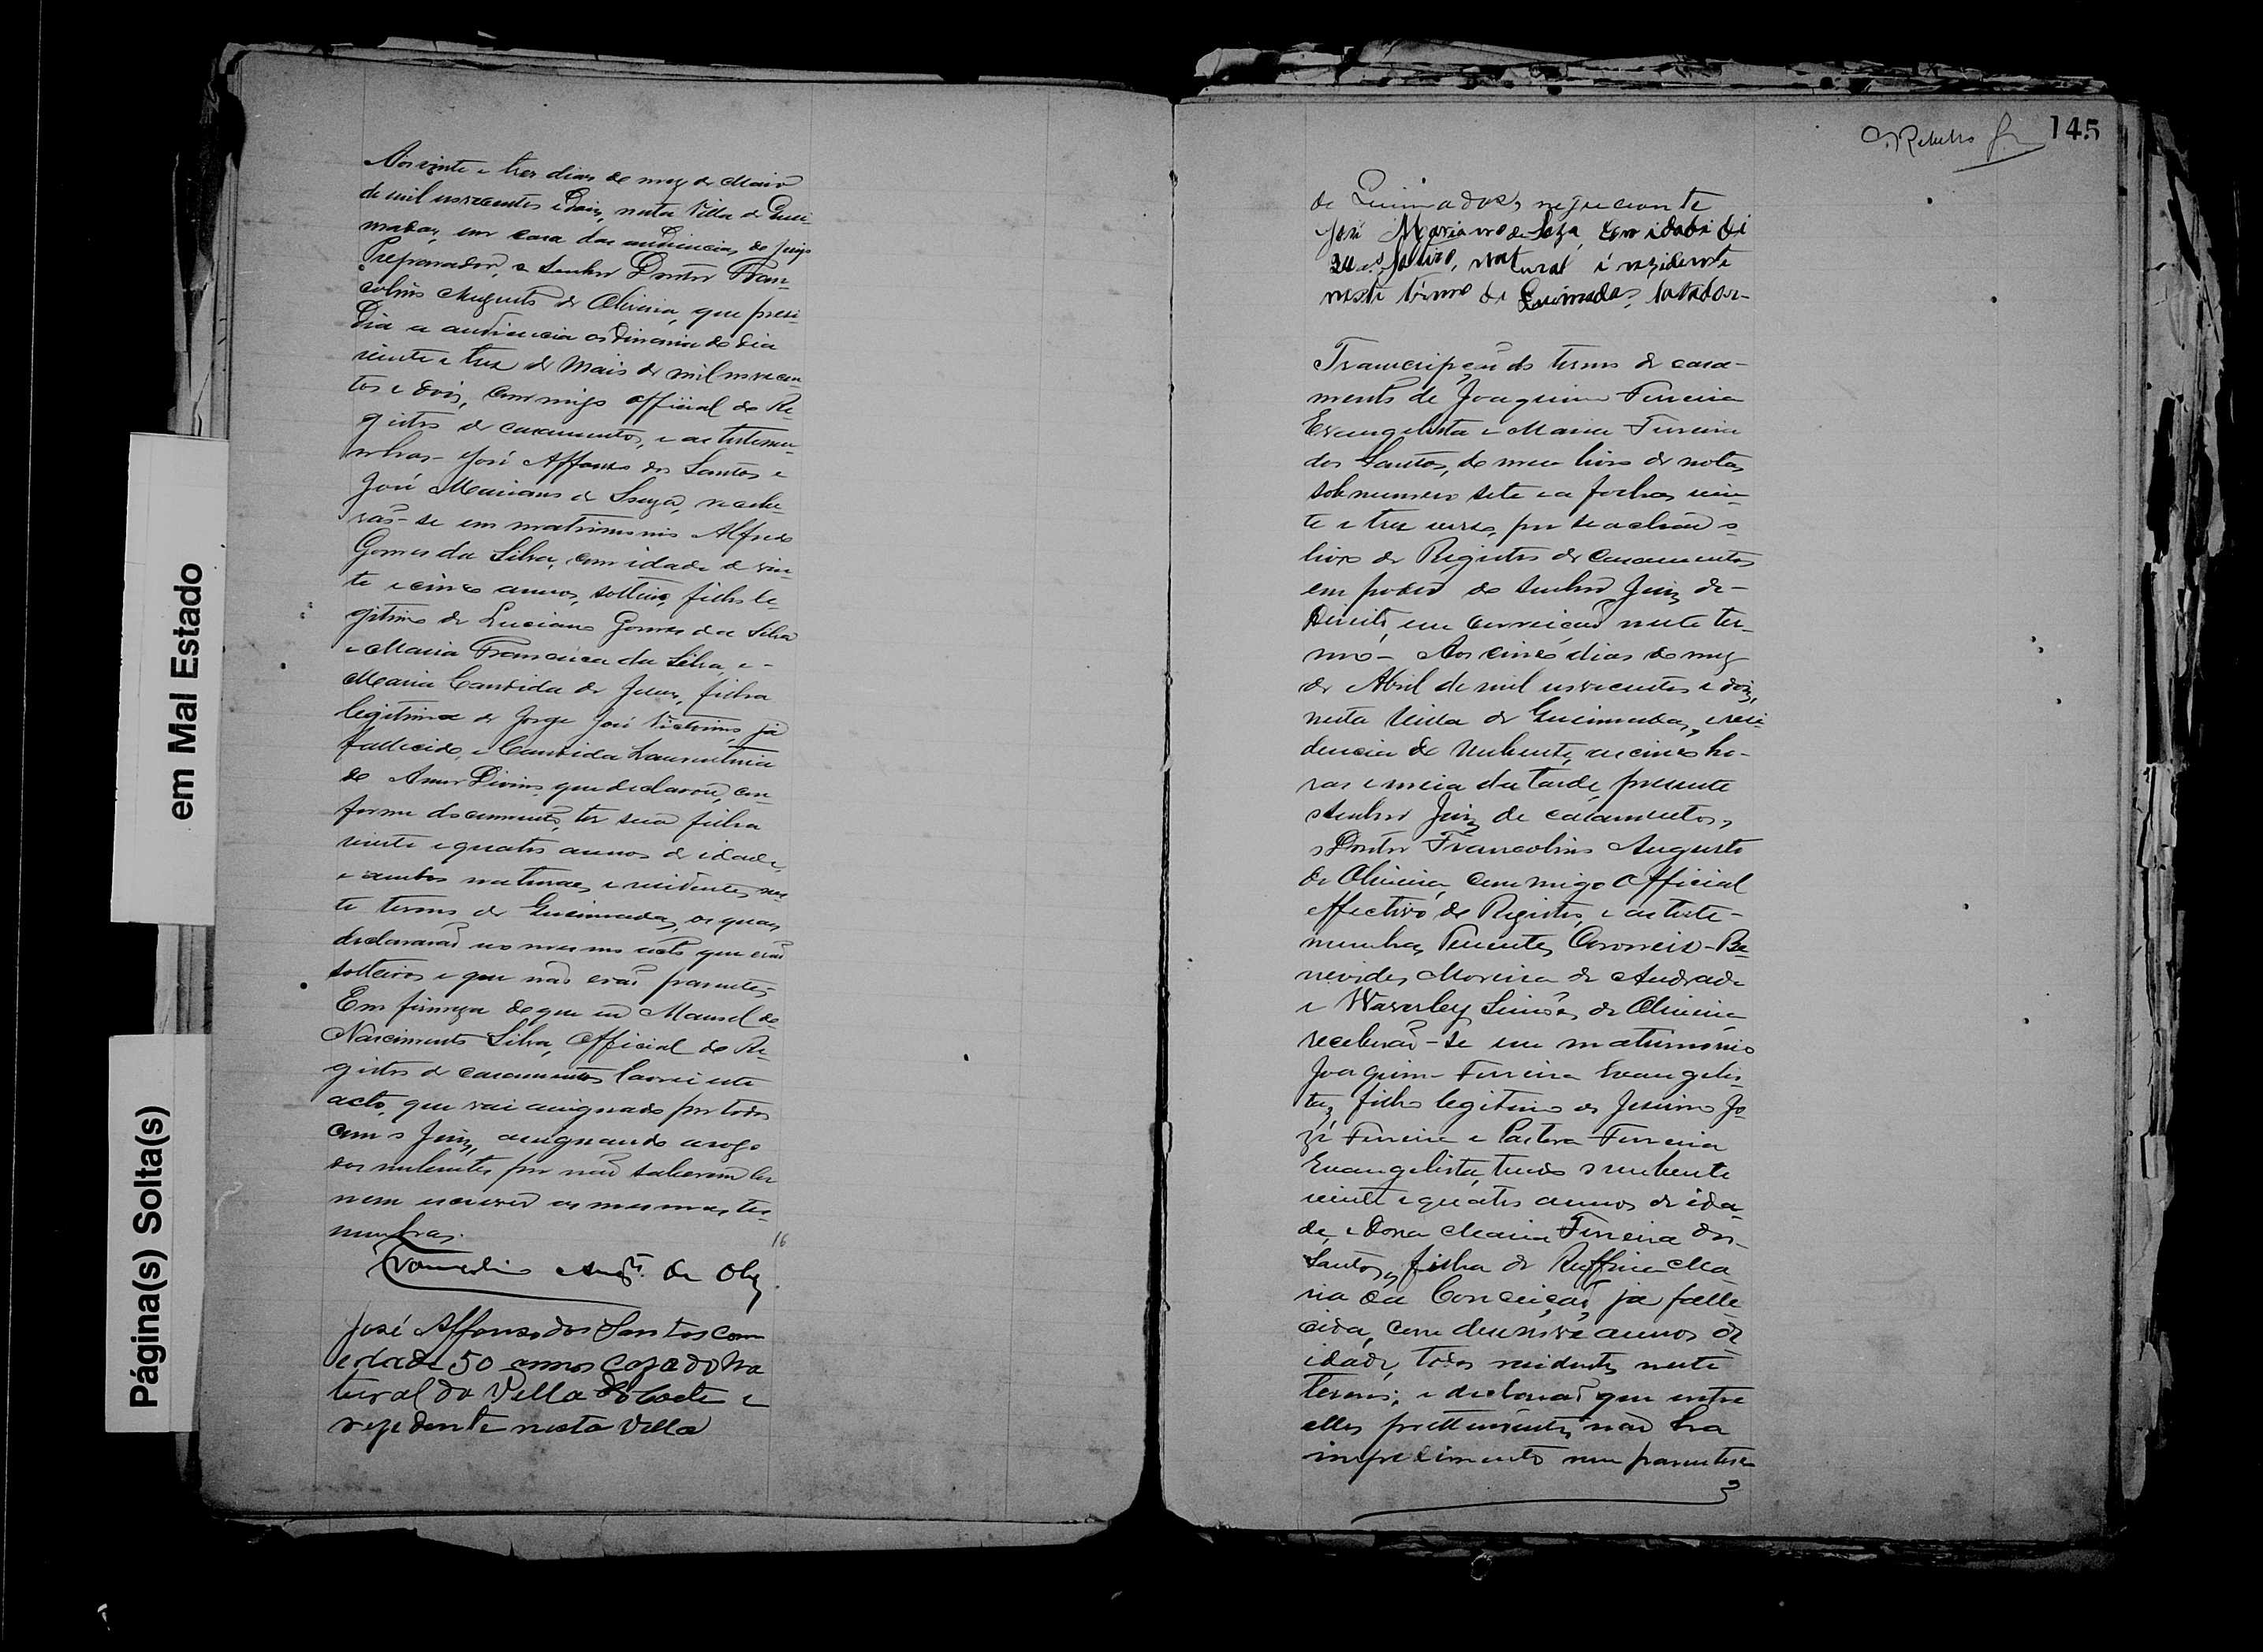 em Mal Estado
Página(s) Solta(s)
Aos vinte e tres dias do mez de Maio
de mil novecentos e dois, nesta Villa de Quei-
madas, em casa das audiencias do Juizo
Preparador, o Senhor Doutor Fran-
colino Augusto de Oliveira, que presi-
dia a audiencia ordinaria do dia
vinte e tres de Maio de mil novecen-
tos e dois, commigo official do Re-
gistro de casamentos, e as testemu-
nhas José Affonso dos Santos e
José Mariano de Souza, recebe-
rão-se em matrimonio Alfredo
Gomes da Silva, com idade de vin-
te e cinco annos, solteiro, filho le-
gitimo de Luciano Gomes da Silva
e Maria Francisca da Silva, e -
Maria Candida de Jesus, filha
legitima de Jorge José Victorino, já
fallecido, e Candida Laurentina
do Amor Divino, que declarou, con-
forme documento, ter sua filha
vinte e quatro annos de idade,
e ambos naturaes e residentes nes-
te termo de Queimadas, os quaes
declararão no mesmo acto que erão
solteiros e que não erão parentes.
Em firmeza do que eu Manoel do
Nascimento Silva, Official do Re-
gistro de casamentos lavrei este
acto, que vai assignado por todos
com o Juiz, assignando a rogo
dos nubentes por não saberem ler
nem escrever as mesmas tes-
munhas.
16
Francolino Augto. de Olivª.
José Affonso dos Santos com
edade 50 annos cazado na
tural da Villa do e
rezidente nesta Villa
145
de Queimadas, negociante
José Mariano de Soza, com idade di
annos, natural i rezidente
neste termo di Queimadas, lavrador-
Transcripção do termo de casa-
mento de Joaquim Ferreira
Evangelista e Maria Ferreira
dos Santos, do meu livro de notas
sob numero sete e a folhas vin-
te e tres verso, por se achar o
livro de Registro de Casamentos
em poder do Senhor Juiz de -
Direito, em correição neste ter-
mo - Aos cinco dias do mez
de Abril de mil novecentos e dois,
nesta Villa de Queimadas, e resi-
dencia do nubente, as cinco ho-
ras e meia da tarde, presente
o Senhor Juiz de casamentos,
o Doutor Francolino Augusto
de Oliveira, commigo Official
effectivo do Registro, e as teste-
munhas Tenente Coronel - Be-
nevides Moreira de Andrade
e Waverley Simões de Oliveira
receberão-se em matrimonio
Joaquim Ferreira Evangelis-
ta, filho legitimo de Jesuino Jo-
zé Ferreira e Pastora Ferreira
Evangelista, tendo o nubente
vinte e quatro annos de ida-
de, e Dona Maria Ferreira dos
Santos, filha de Ruffina Ma-
ria da Conceição, já falle-
cida, com desenove annos de
idade, todos residentes neste
termo; e declarão que entre
elles prettendentes não ha
impedimento nem parentesco